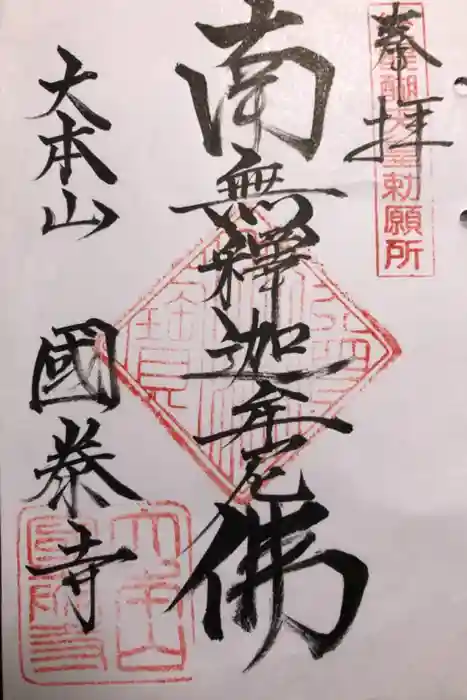 奉拝
後醍醐天皇勅願所
南無釋迦牟尼佛
大本山
國泰寺